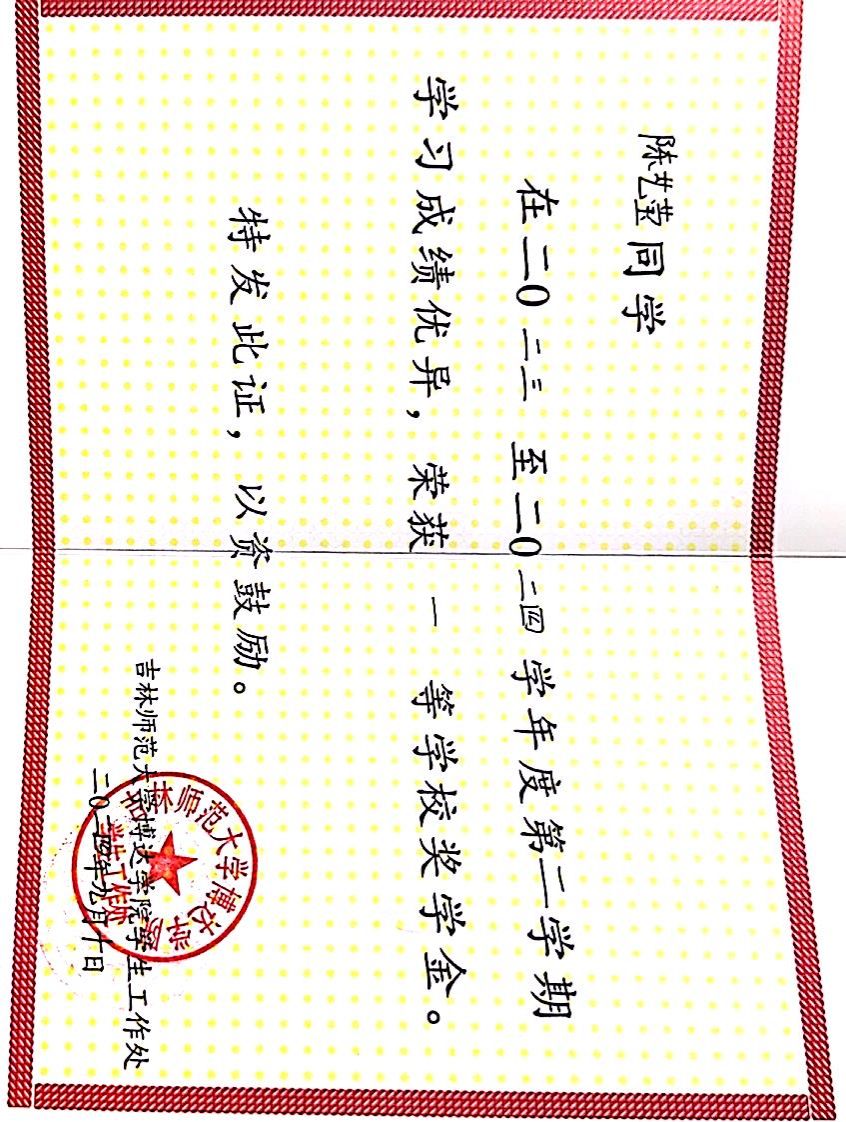 陈艺莹同学
在二0二三至二0二四学年度第二学期
学习成绩优异，荣获一等学校奖学金。
特发此证，以资鼓励。
吉林师范大学博达学院学生工作处
二0二四年九月十日
吉林师范大学博达学院
学生工作处